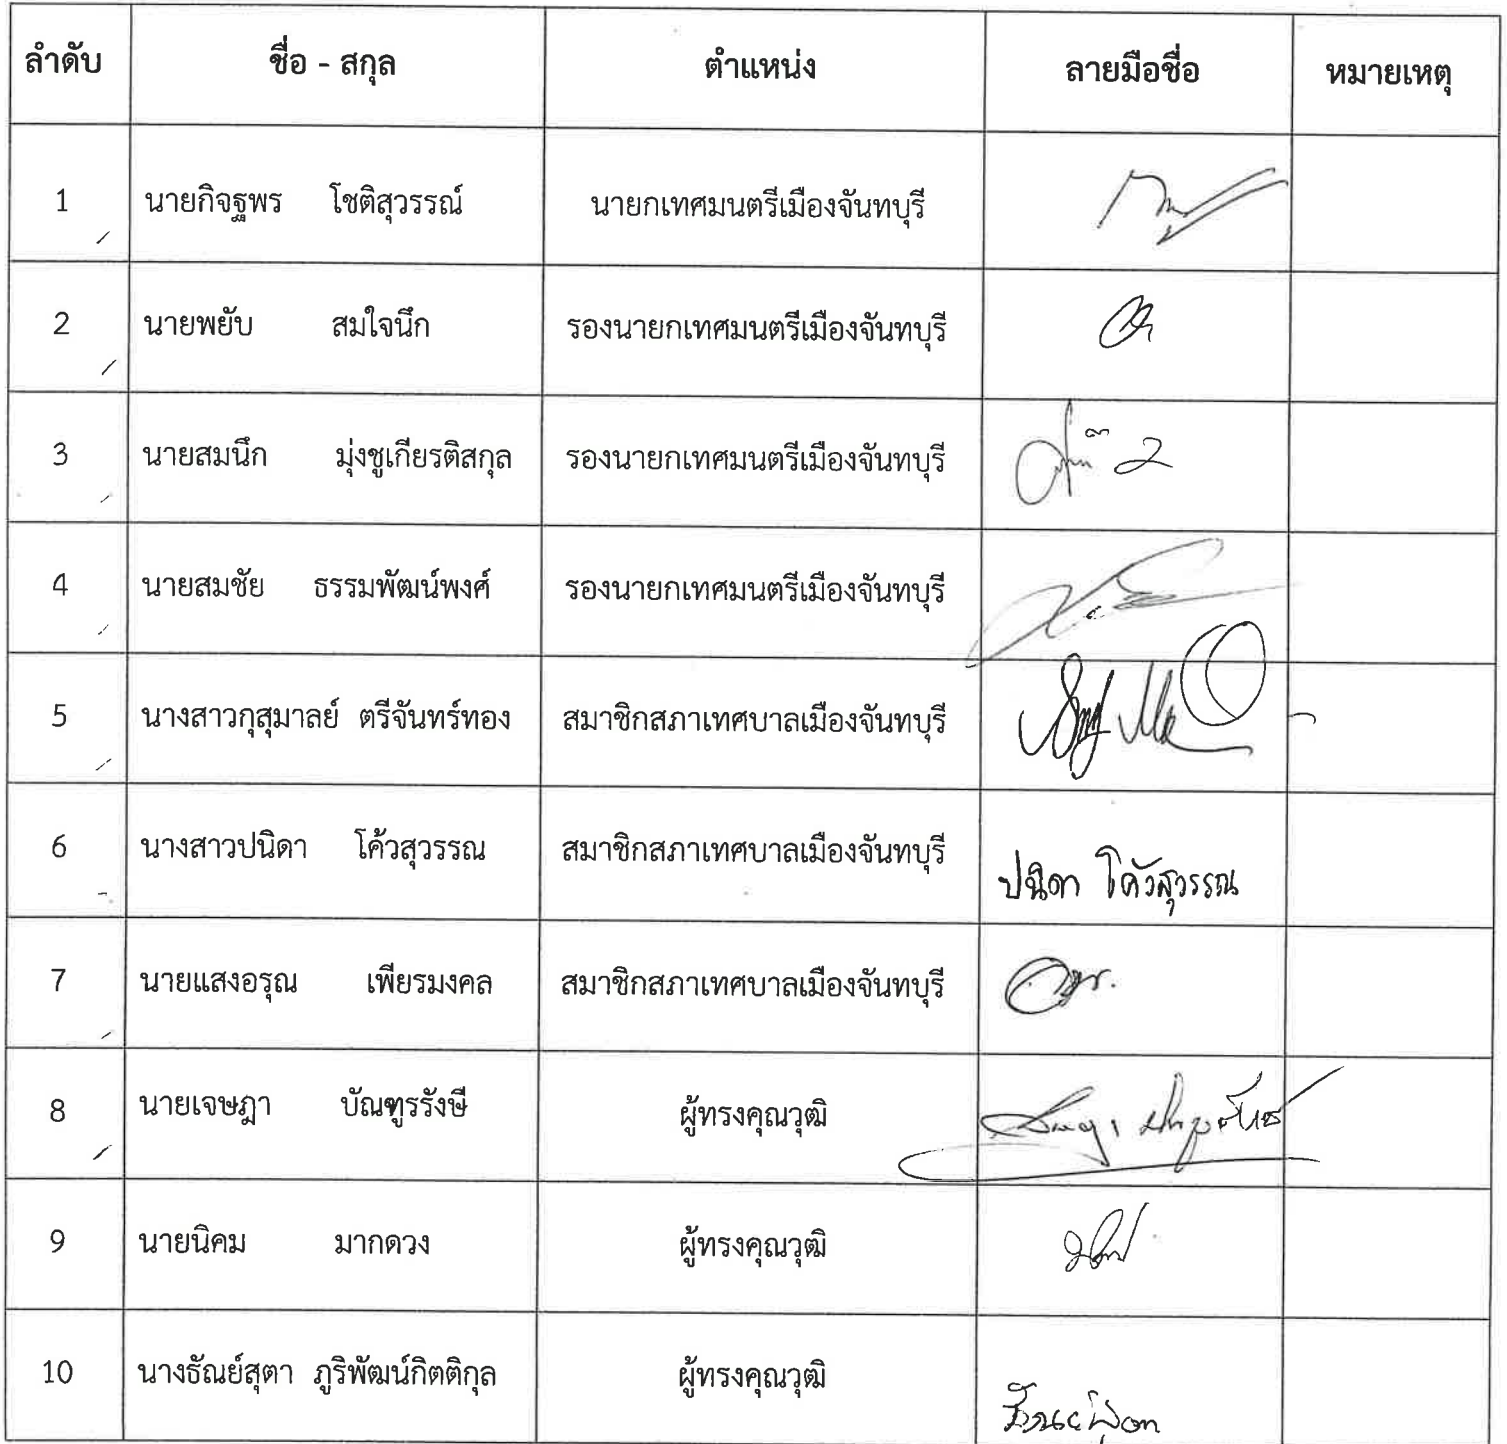 ลำดับ ชื่อ - สกุล ตำแหน่ง ลายมือชื่อ หมายเหตุ
1 นายกิจฐพร โชติสุวรรณ์ นายกเทศมนตรีเมืองจันทบุรี
2 นายพยับ สมใจนึก รองนายกเทศมนตรีเมืองจันทบุรี
3 นายสมนึก มุ่งชูเกียรติสกุล รองนายกเทศมนตรีเมืองจันทบุรี
4 นายสมชัย ธรรมพัฒน์พงศ์ รองนายกเทศมนตรีเมืองจันทบุรี
5 นางสาวกุสุมาลย์ ตรีจันทร์ทอง สมาชิกสภาเทศบาลเมืองจันทบุรี
6 นางสาวปนิดา โค้วสุวรรณ สมาชิกสภาเทศบาลเมืองจันทบุรี ปนิดา โค้วสุวรรณ
7 นายแสงอรุณ เพียรมงคล สมาชิกสภาเทศบาลเมืองจันทบุรี
8 นายเจษฎา บัณฑูรรังษี ผู้ทรงคุณวุฒิ
9 นายนิคม มากดวง ผู้ทรงคุณวุฒิ
10 นางธัณย์สุตา ภูริพัฒน์กิตติกุล ผู้ทรงคุณวุฒิ